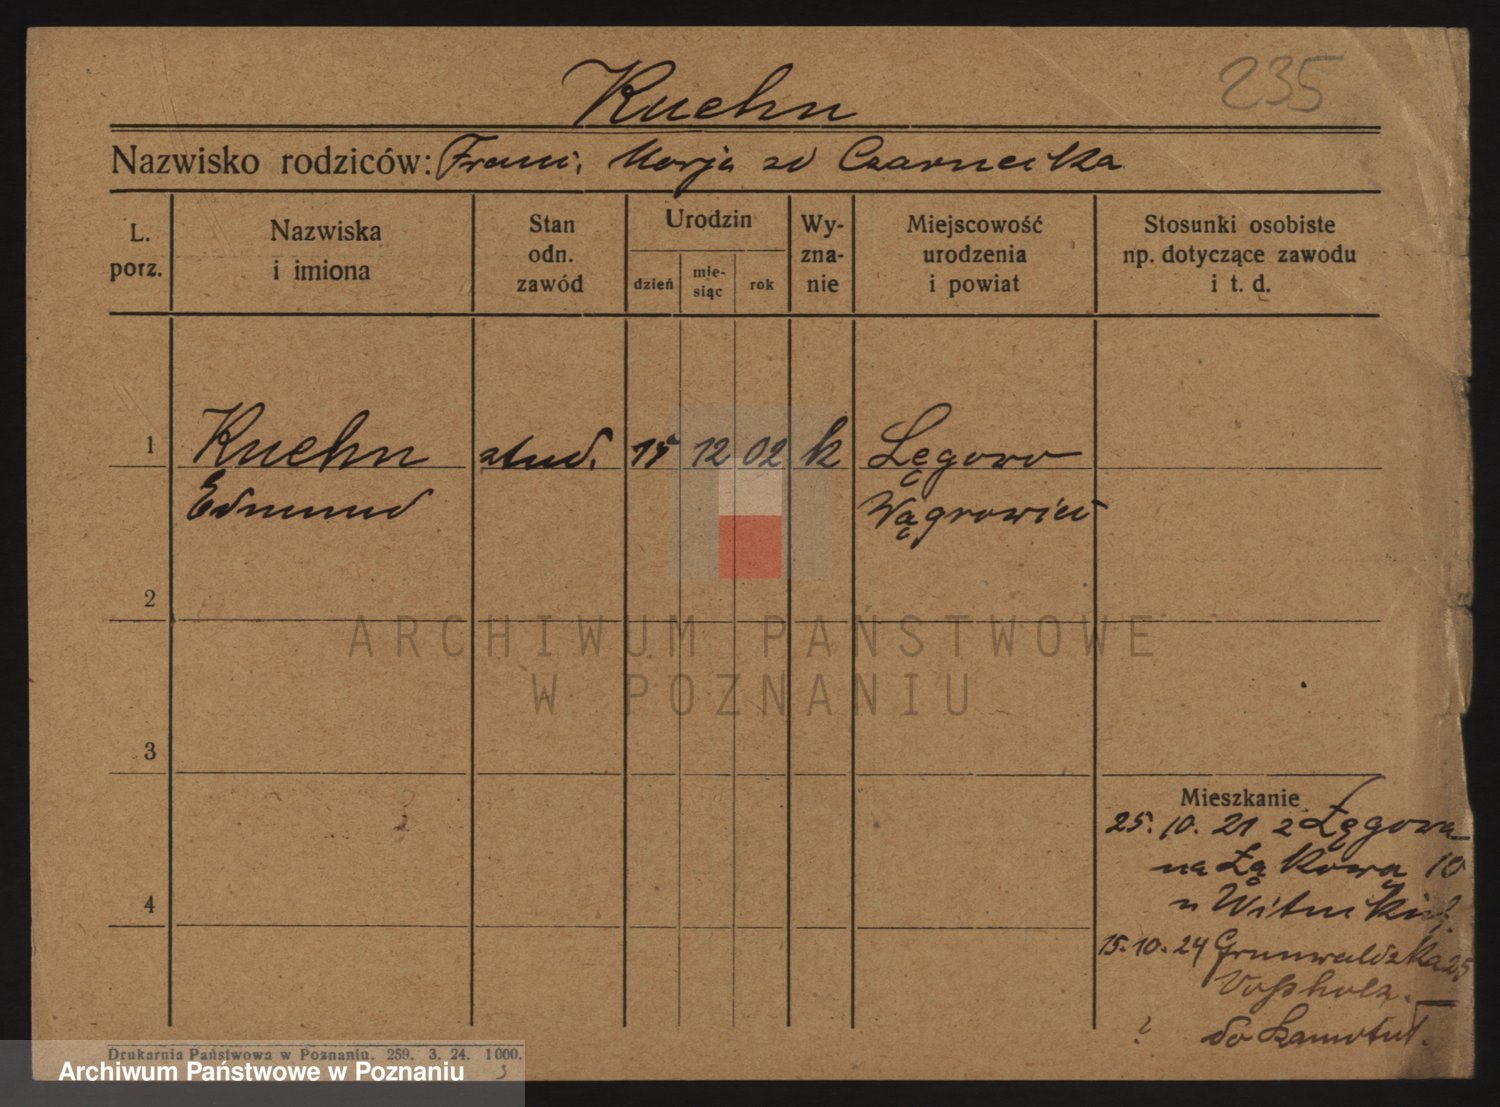 235
Kuehn
Nazwisko rodziców: Franc. Marja zd Czarnecka
L. porz.
Nazwiska i imiona
Stan odn. zawód
Urodzin
dzień
mie-siąc
rok
Wy-zna-nie
Miejscowość urodzenia i powiat
Stosunki osobiste np. dotyczące zawodu i t. d.
1 Kuehn stud. 15 12 02 k Łęgowo
Edmund Wągrowiec
2
ARCHIWUM PAŃSTWOWE
W POZNANIU
3
Mieszkanie
25. 10. 21 z Łęgowa
na Łąkową 10
u
4
15. 10. 24 Grunwaldzka 25
Vossholz.
? do Szamotuł.
Drukarnia Państwowa w Poznaniu. 259. 3. 24. 1000.
Archiwum Państwowe w Poznaniu